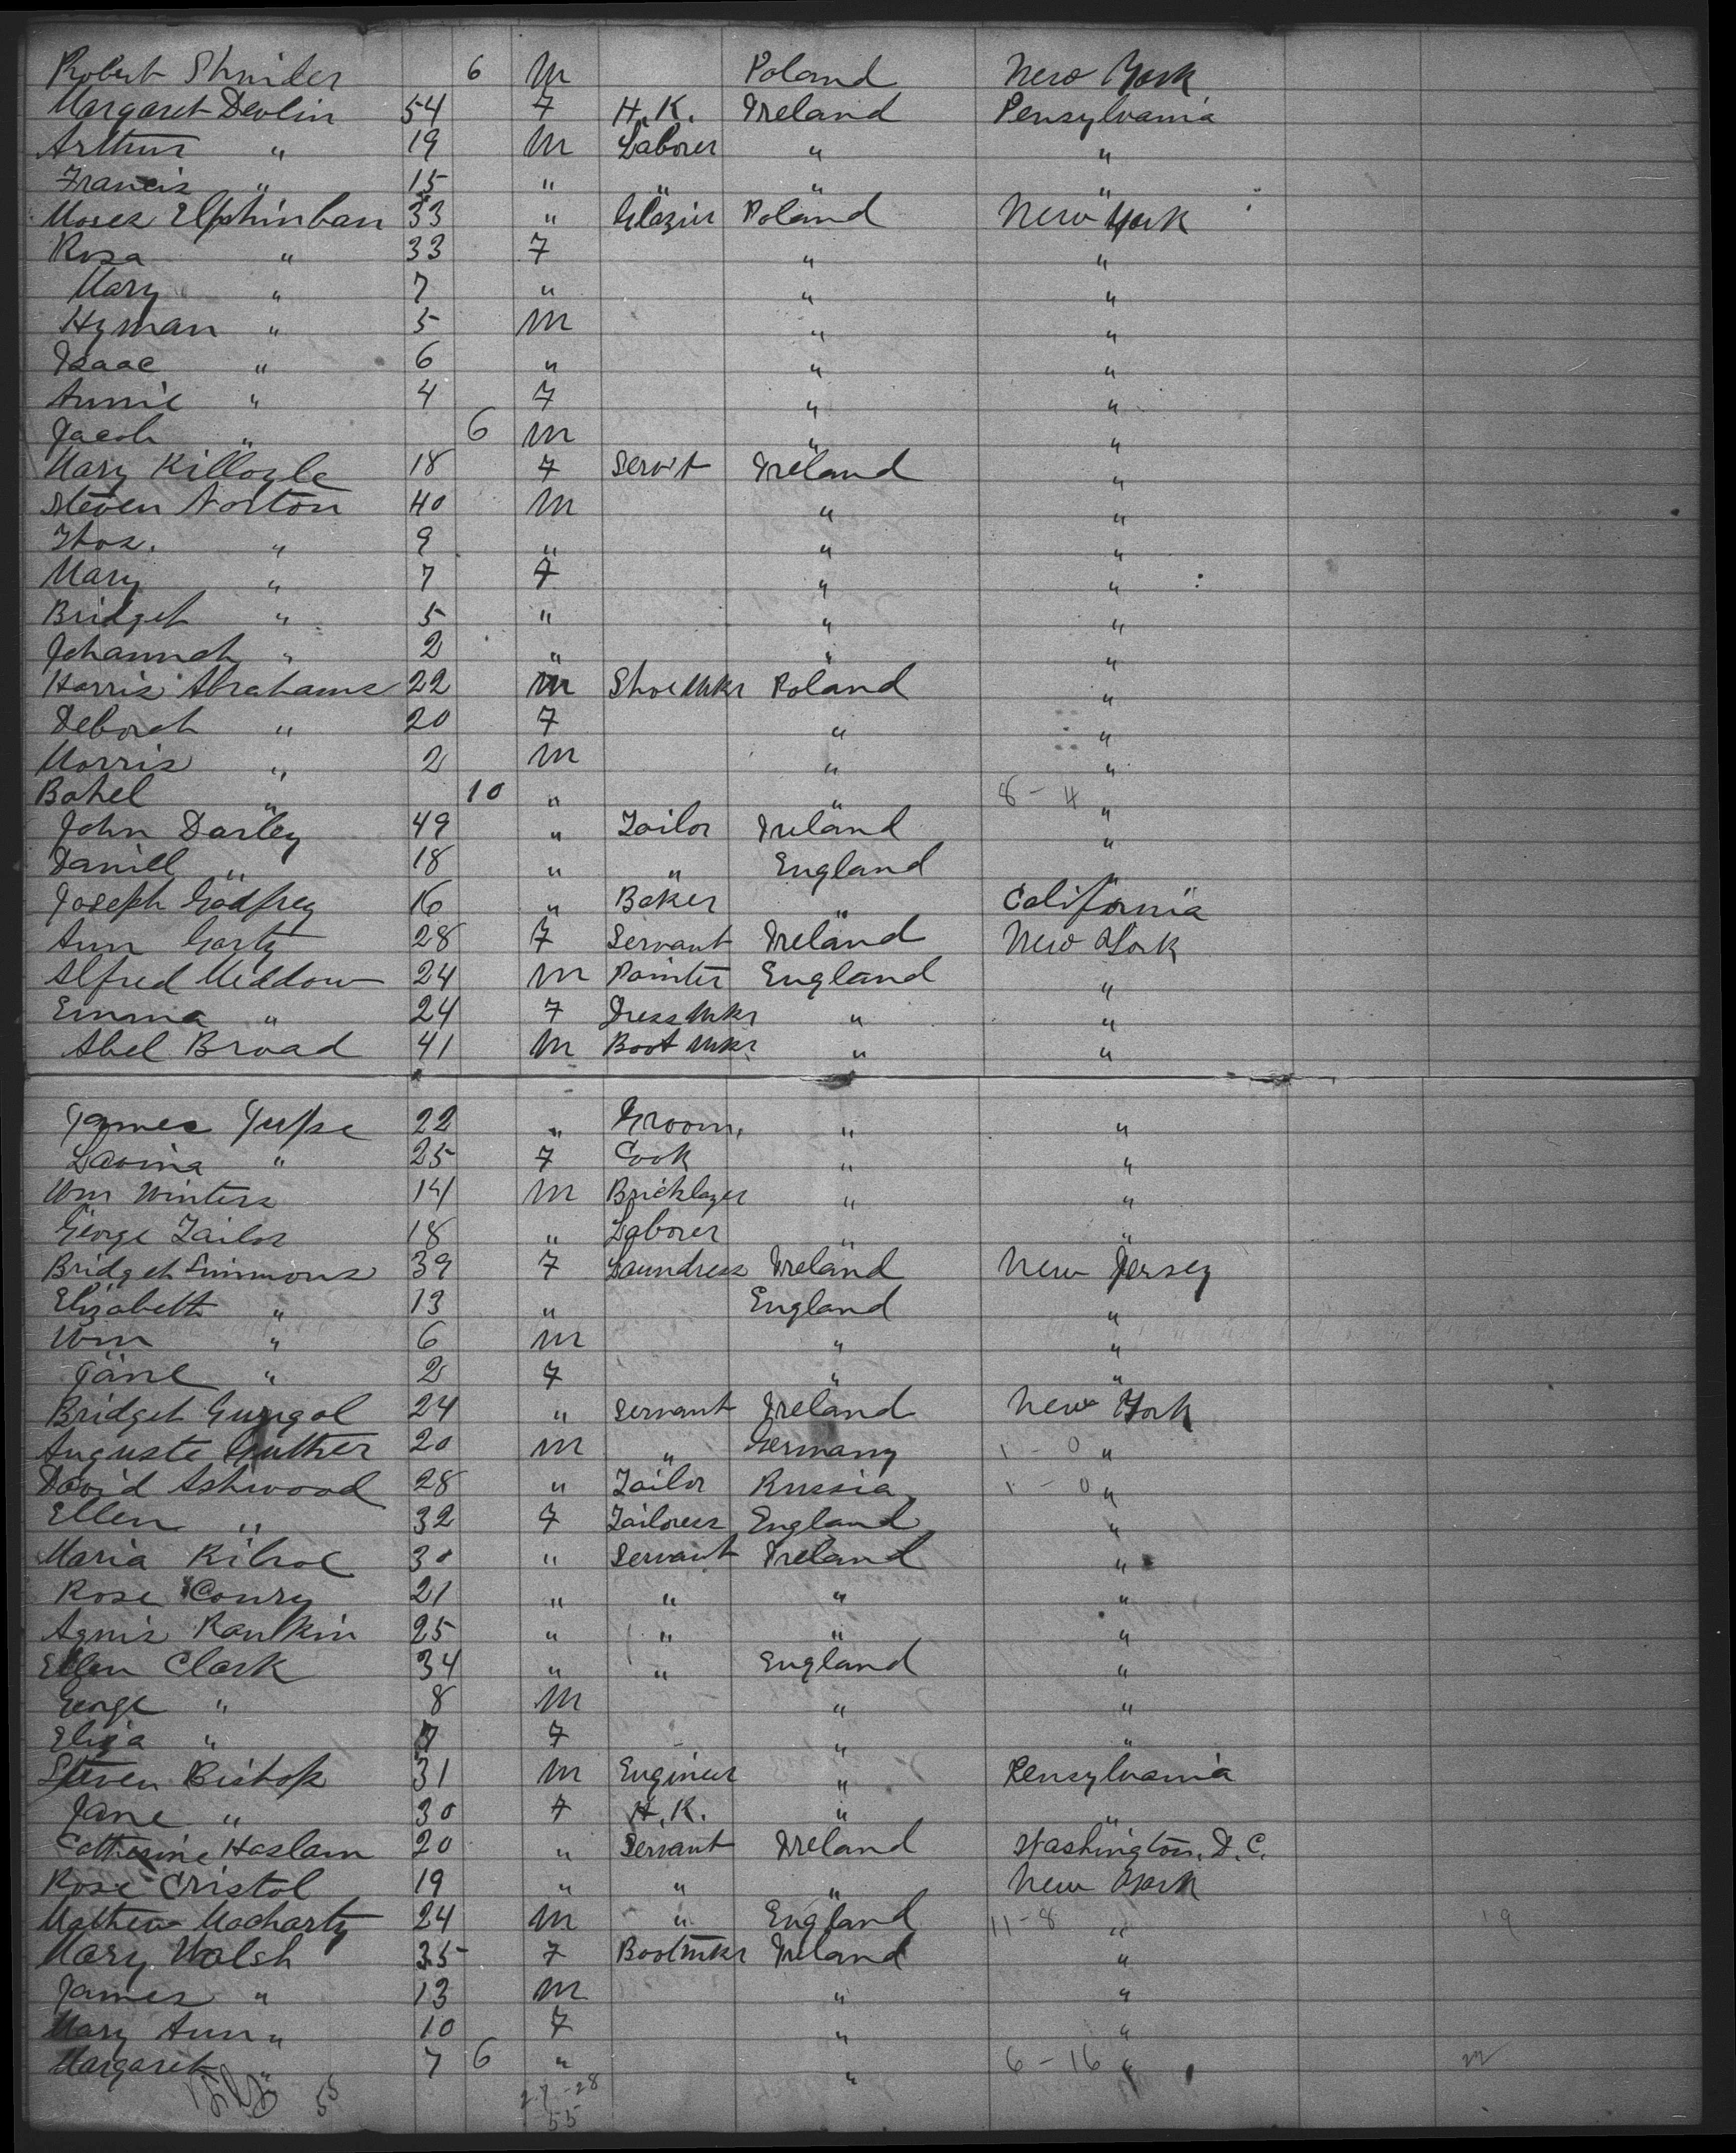 Robert Shnider 6 M Poland New York
Margaret Devlin 54 F H.K. Ireland Pensylvania
Arthur " 19 M Laborer " "
Francis " 15 " " " "
Moses Elphinban 33 " Glazier Poland New York
Rosa " 33 F " "
Mary " 7 " " "
Hyman " 5 M " "
Isaac " 6 " " "
Annie " 4 F " "
Jacob " 6 M " "
Mary Killoyle 18 F Serv't Ireland "
Steven Norton 40 M " "
Thos. " 9 " " "
Mary " 7 F " "
Bridget " 5 " " "
Johannah " 2 " " "
Harris Abrahams 22 M Shoe Mkr Poland "
Deborah " 20 F " "
Morris " 2 M " "
Bahel " 10 " " 8 - 4 "
John Darley 49 " Tailor Ireland "
Daniel " 18 " " England "
Joseph Godfrey 16 " Baker " California
Ann Garty 28 F Servant Ireland New York
Alfred Meddow 24 M Painter England "
Emma " 24 F Dress Mkr " "
Abel Broad 41 M Boot Mkr " "
James Jupe 22 " Groom, " "
Lavina " 25 F Cook " "
Wm Winters 14 M Bricklayer " "
George Tailor 18 " Laborer " "
Bridget Simmons 39 F Laundress Ireland New Jersey
Elizabeth " 13 " England "
Wm " 6 M " "
Jane " 2 F " "
Bridget Gungal 24 " Servant Ireland New York
Auguste Guther 20 M " Germany 1 - 0 "
David Ashwood 28 " Tailor Russia 1 - 0 "
Ellen " 32 F Tailoress England "
Maria Kilroe 30 " Servant Ireland "
Rose Conry 21 " " " "
Agnis Rankin 25 " " " "
Ellen Clark 34 " " England "
George " 8 M " "
Eliza " 7 F " "
Steven Bishop 31 M Engineer " Pensylvania
Jane " 30 F H.K. " "
Catherine Haslam 20 " Servant Ireland Washington, D.C.
Rose Cristol 19 " " " New York
Mathew Macharty 24 M " England 11-8 " 19
Mary Walsh 35 F Boot Mkr Ireland "
James " 13 M " "
Mary Ann " 10 F " "
Margaret " 7 6 " " 6 - 16 "
55 27 - 28
55